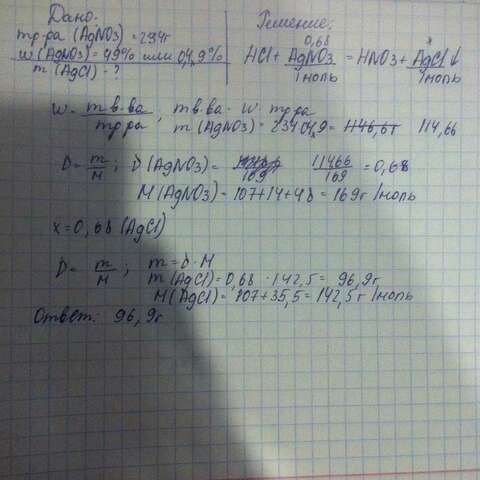 Дано:
mр-ра (AgNO3) = 234г
w(AgNO3) = 49% или 04,9%
m (AgCl) - ?
Решение:
0,68 x
HCl + AgNO3 = HNO3 + AgCl↓
1моль 1моль
w = mв-ва / mр-ра ; mв-ва = w · mр-ра
m (AgNO3) = 234·04,9 = 1146,6г 114,66
D = m/M ; D (AgNO3) = 114,66/169 = 0,68
M(AgNO3) = 107+14+48 = 169г/моль
x = 0,68 (AgCl)
D = m/M ; m = D · M
m (AgCl) = 0,68 · 142,5 = 96,9г
M (AgCl) = 107+35,5 = 142,5г/моль
Ответ: 96,9г